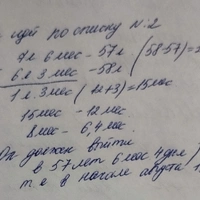 идёт по списку N.2
7л 6мес - 57л (58-57)=
6л 3мес - 58л
1л 3мес (12+3)=15мес
15мес - 12мес.
8мес - 6,4мес.
должен выйти
в 57лет 6мес 4дня)
т.е в начале августа